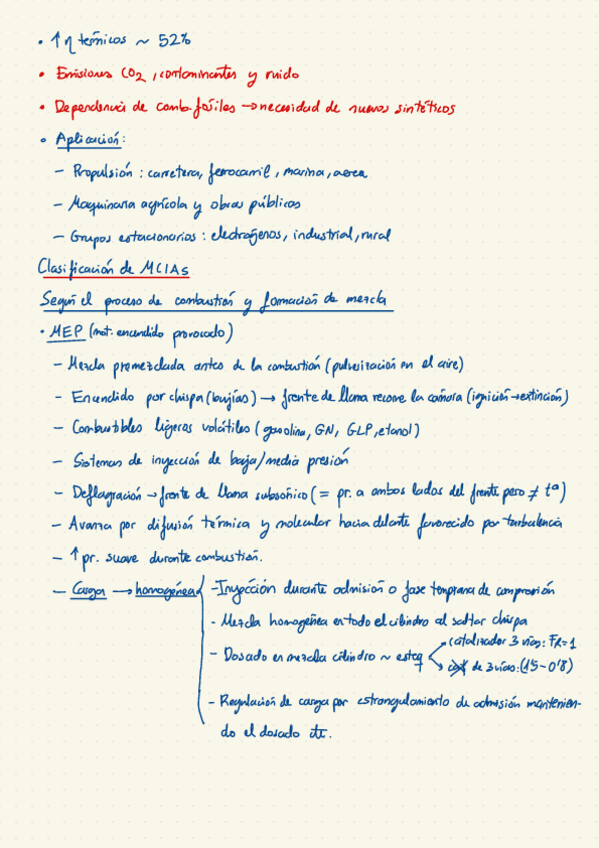 • ↑ η térmicos ~ 52%
• Emisiones CO2, contaminantes y ruido
• Dependencia de comb. fósiles → necesidad de nuevos sintéticos
• Aplicación:
– Propulsión: carretera, ferrocarril, marina, aerea
– Maquinaria agrícola y obras públicas
– Grupos estacionarios: electrógenos, industrial, rural
Clasificación de MCIAs
Según el proceso de combustión y formación de mezcla
• MEP (mot. encendido provocado)
– Mezcla premezclada antes de la combustión (pulverización en el aire)
– Encendido por chispa (bujías) → frente de llama recorre la cámara (ignición→extinción)
– Combustibles ligeros volátiles (gasolina, GN, GLP, etanol)
– Sistemas de inyección de baja/media presión
– Deflagración → frente de llama subsónico (= pr. a ambos lados del frente pero ≠ tª)
– Avanza por difusión térmica y molecular hacia delante favorecido por turbulencia
– ↑ pr. suave durante combustión.
– Carga → homogénea
– Inyección durante admisión o fase temprana de compresión
– Mezcla homogénea en todo el cilindro al saltar chispa
– Dosado en mezcla cilindro ~ esteq
catalizador 3 vías: FR=1
de 3 vías: (1'5-0'8)
– Regulación de carga por estrangulamiento de admisión mantenien-
do el dosado cte.